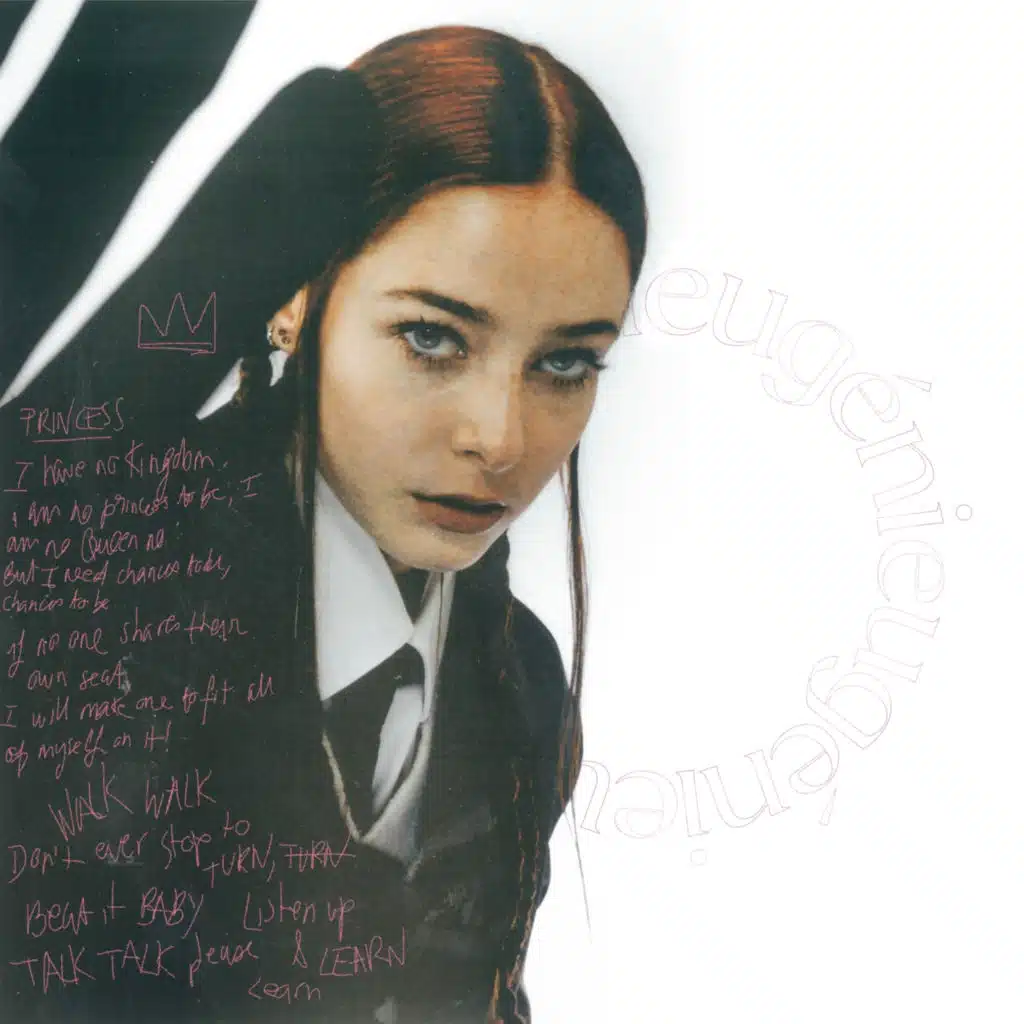 PRINCESS
I have no Kingdom.
i am no princess to be, I
am no Queen no.
But I need chances to be,
chances to be
if no one shares their
own seat,
I will make one to fit all
of myself on it!
WALK WALK
Don't ever stop to
TURN, TURN
Beat it BABY Listen up
TALK TALK please & LEARN
Learn
eugénieugénieu